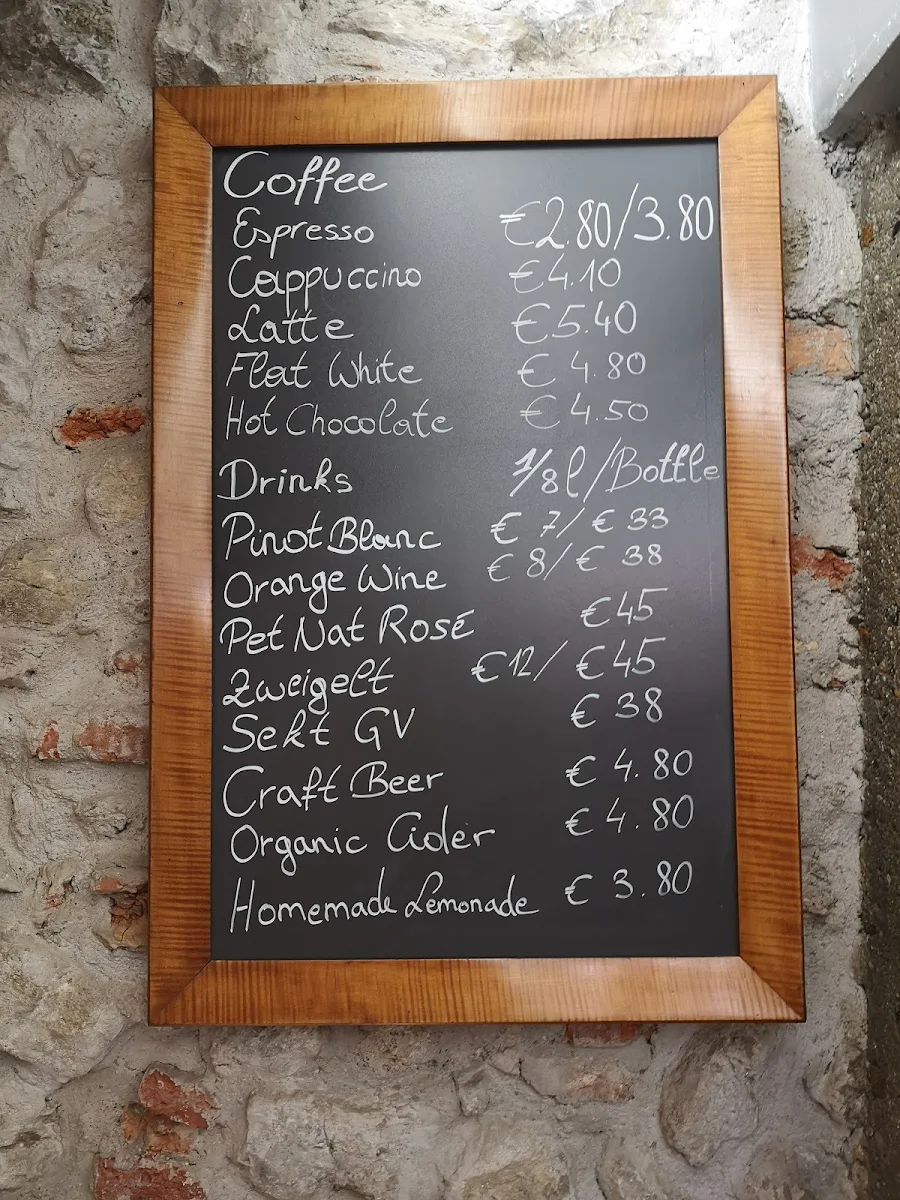 Coffee
Espresso €2.80/3.80
Cappuccino €4.10
Latte €5.40
Flat White € 4.80
Hot Chocolate € 4.50
Drinks 1/8l/Bottle
Pinot Blanc € 7/ € 33
Orange Wine € 8/ € 38
Pet Nat Rosé €45
Zweigelt €12/ €45
Sekt GV € 38
Craft Beer € 4.80
Organic Cider € 4.80
Homemade Lemonade € 3.80